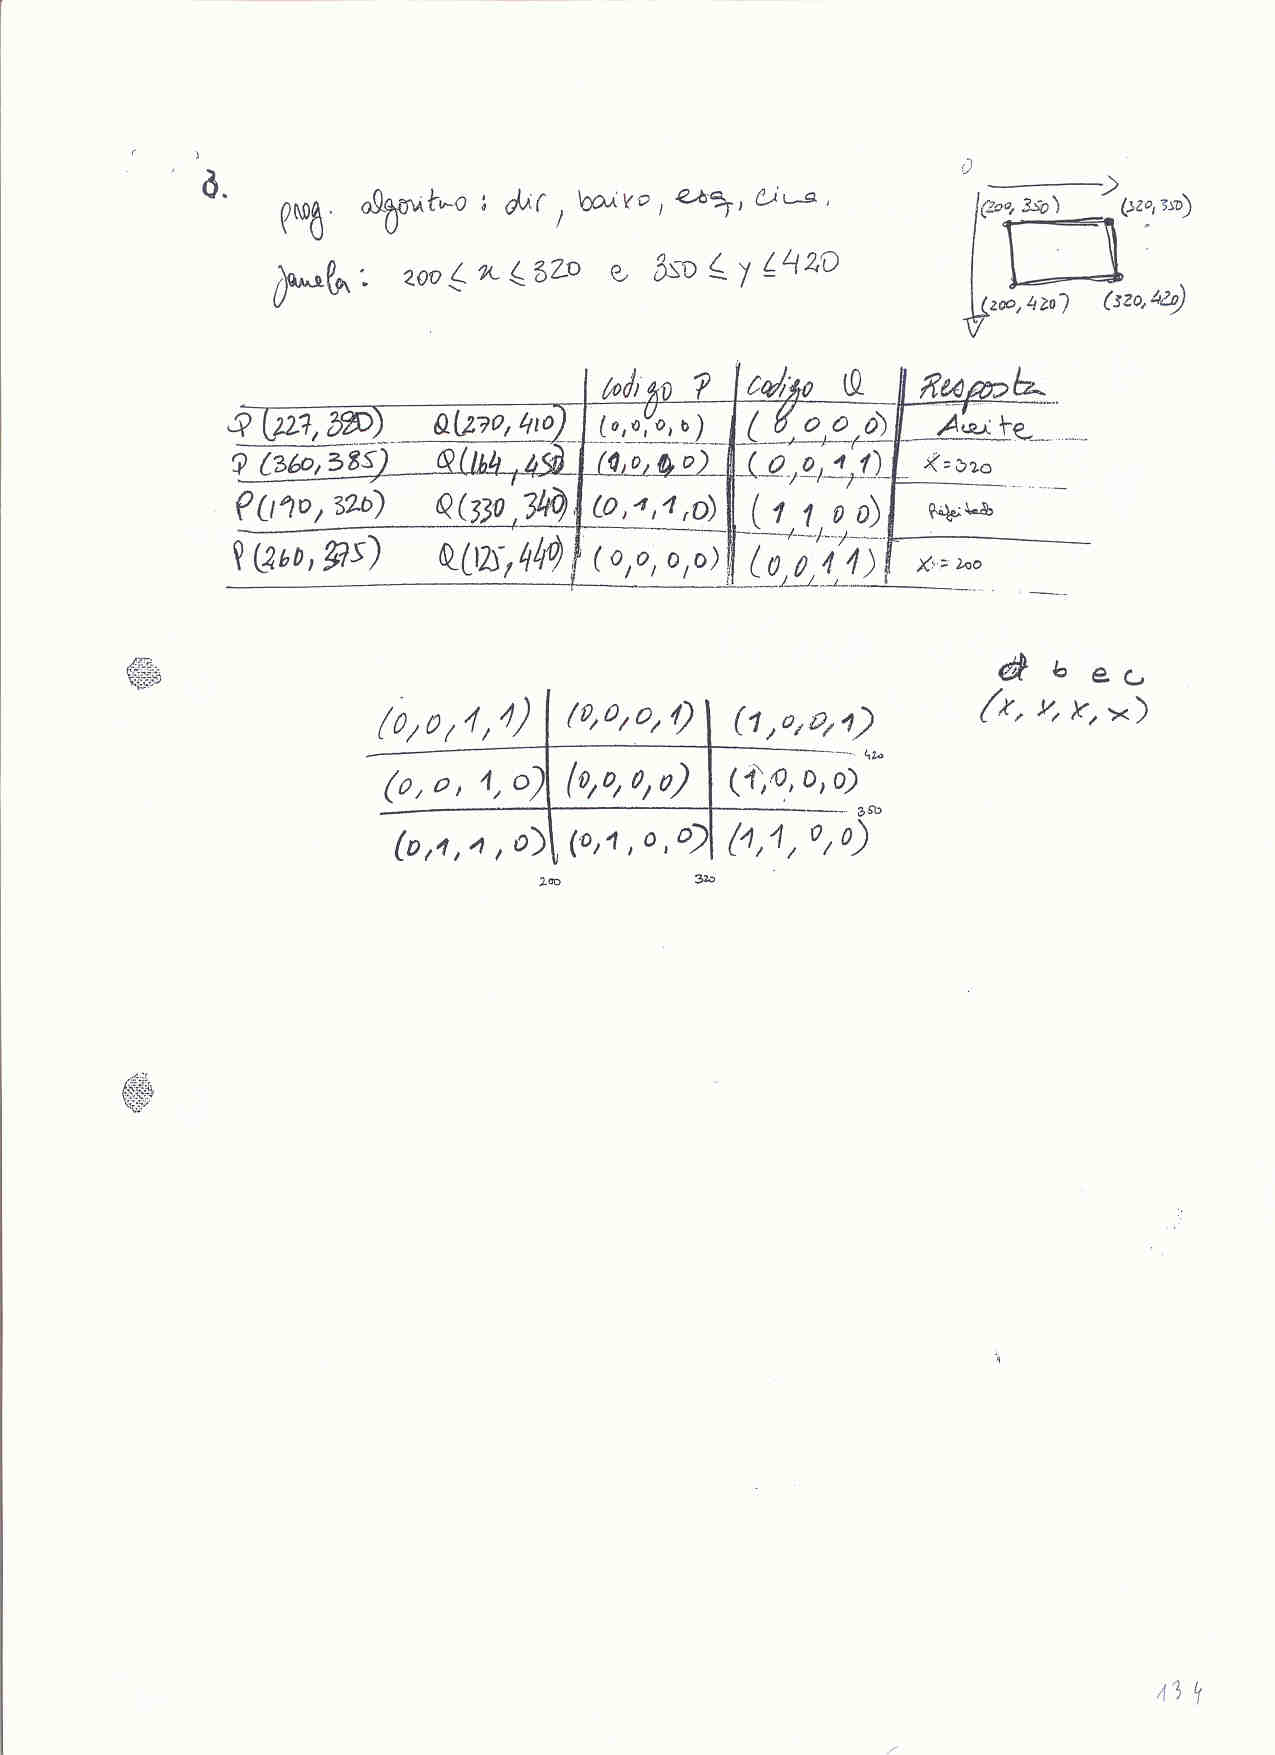 8.
prog. algoritmo : dir, baixo, esq, cima.
janela : 200 ≤ x ≤ 320 e 350 ≤ y ≤ 420
0
(200, 350) (320, 350)
(200, 420) (320, 420)
Codigo P Codigo Q Resposta
P (227, 380) Q (270, 410) (0,0,0,0) (0,0,0,0) Aceite
P (360, 385) Q (164, 450) (1,0,0,0) (0,0,1,1) X = 320
P (190, 320) Q (330, 340) (0,1,1,0) (1,1,0,0) Rejeitado
P (260, 375) Q (125, 440) (0,0,0,0) (0,0,1,1) X = 200
d b e c
(x, x, x, x)
(0,0,1,1) (0,0,0,1) (1,0,0,1)
420
(0,0,1,0) (0,0,0,0) (1,0,0,0)
350
(0,1,1,0) (0,1,0,0) (1,1,0,0)
200 320
134